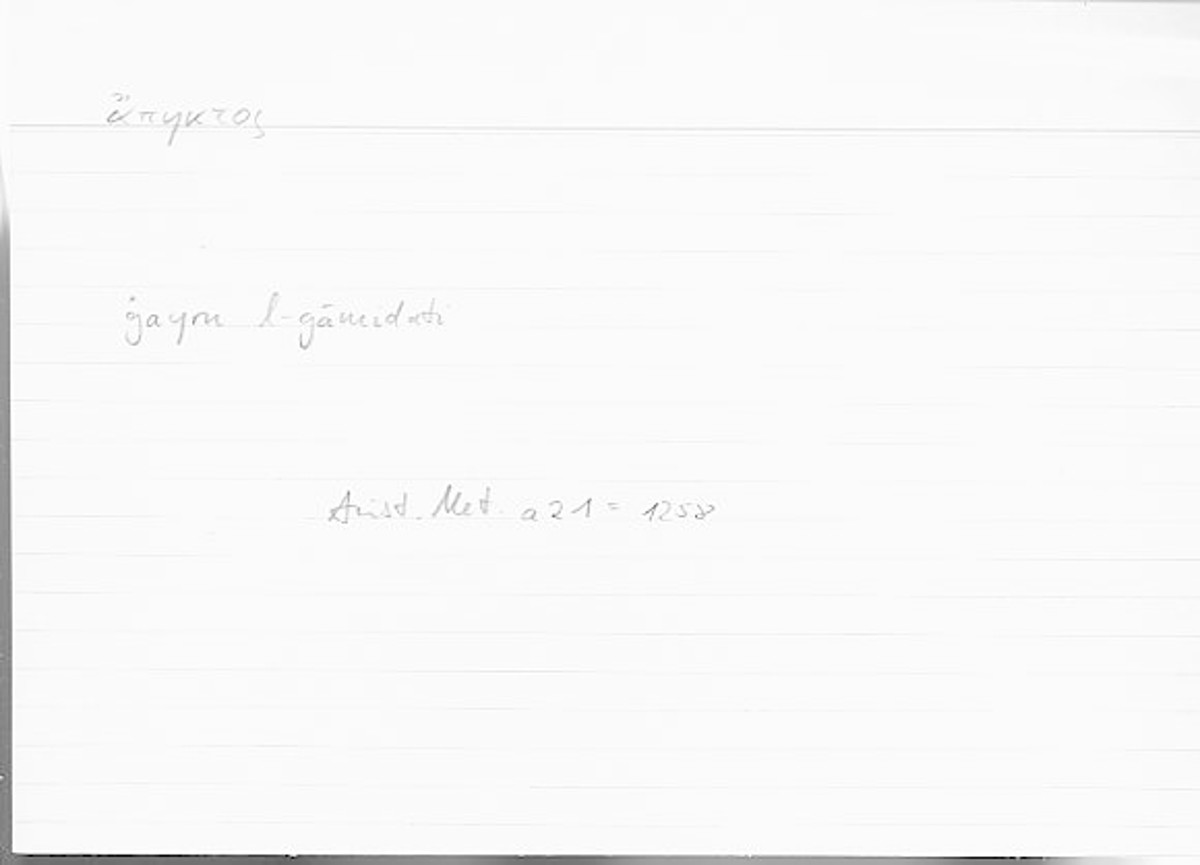 ἄπηκτος
ġayru l-gāmidati
Arist. Met. a 21 = 1258